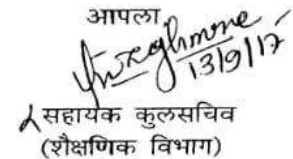 आपला
13/9/17
सहायक कुलसचिव
(शैक्षणिक विभाग)